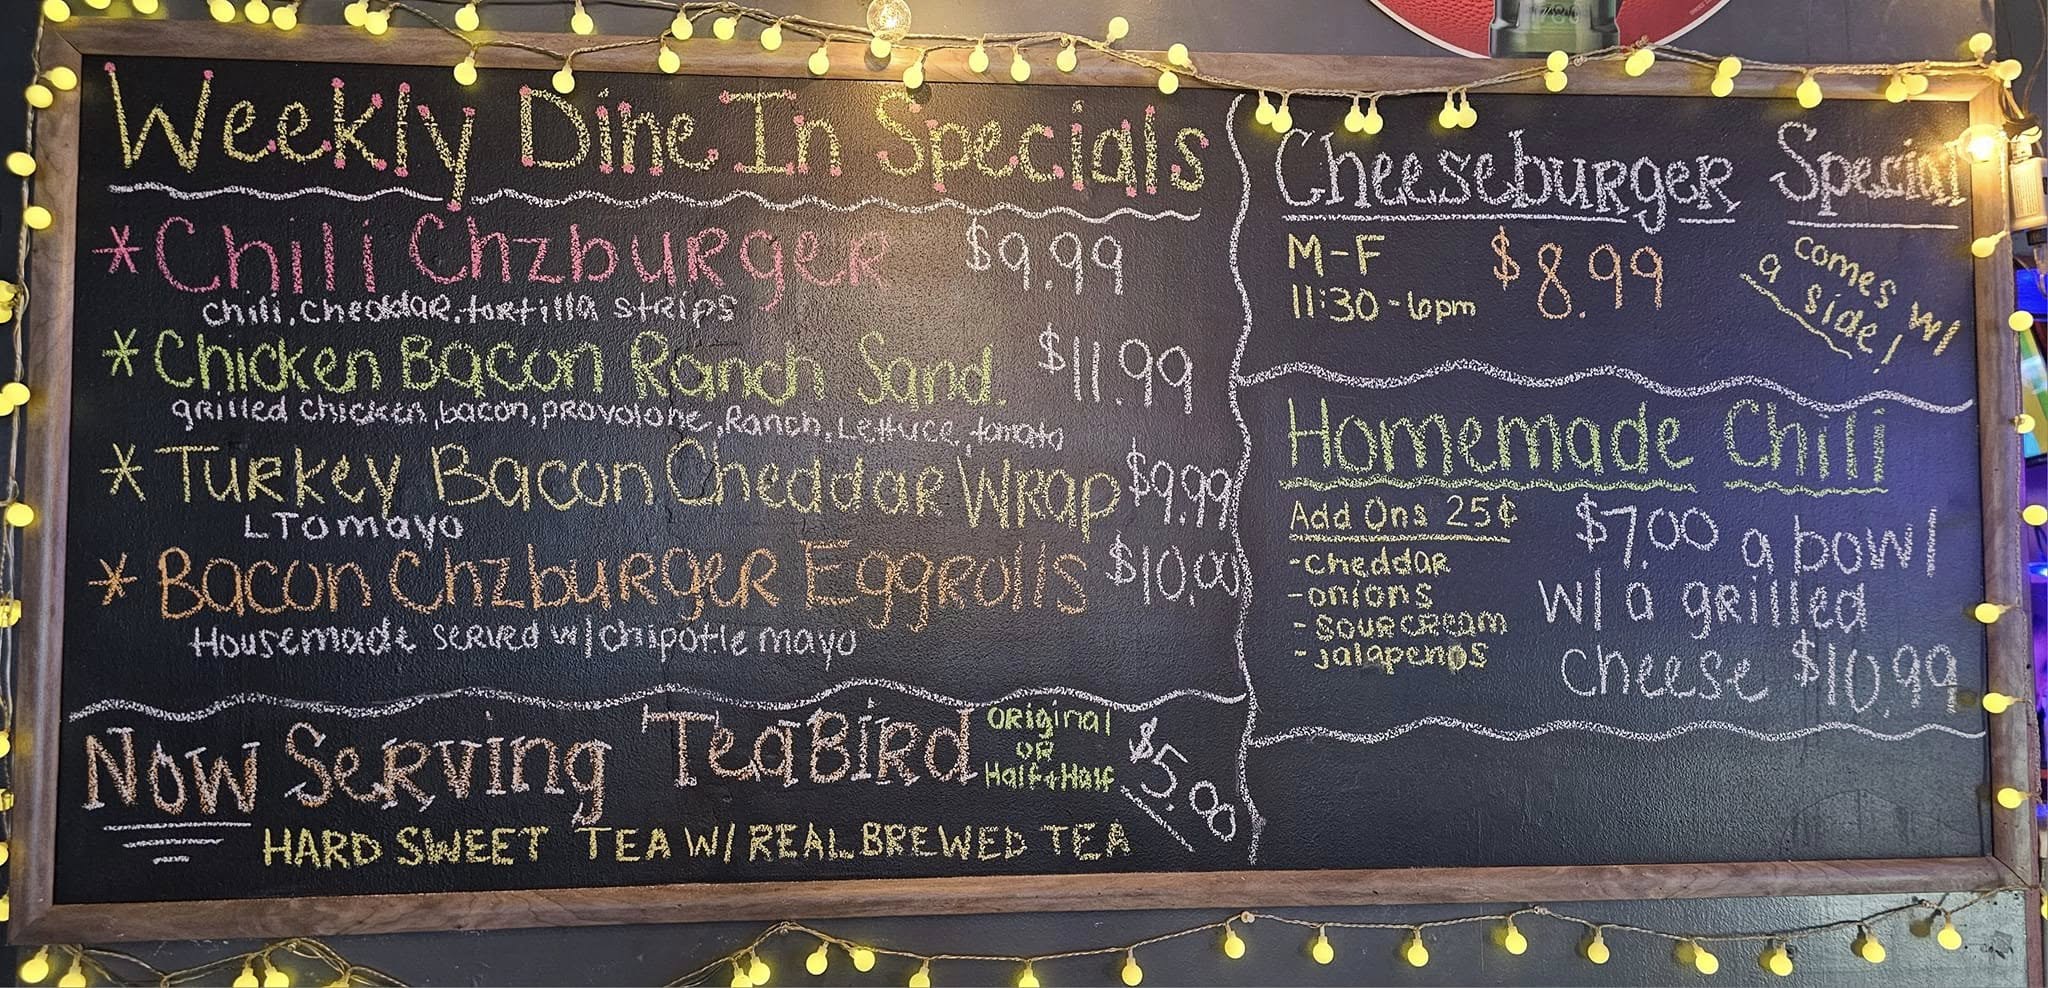 Weekly Dine In Specials
* Chili ChzburgeR $9.99
chili, cheddar, tortilla strips
* Chicken Bacon Ranch Sand. $11.99
grilled chicken, bacon, provolone, Ranch, Lettuce, tomato
* Turkey Bacon Cheddar Wrap $9.99
LTO mayo
* Bacon Chzburger Eggrolls $10.00
Housemade served w/chipotle mayo
Now Serving TeaBird
Original
or
Half + Half
$5.00
HARD SWEET TEA W/ REAL BREWED TEA
Cheeseburger Special
M-F $8.99
11:30-6pm
comes w/
a side!
Homemade Chili
Add Ons 25¢
-cheddar
-onions
-sour cream
-jalapenos
$7.00 a bowl
w/ a grilled
cheese $10.99